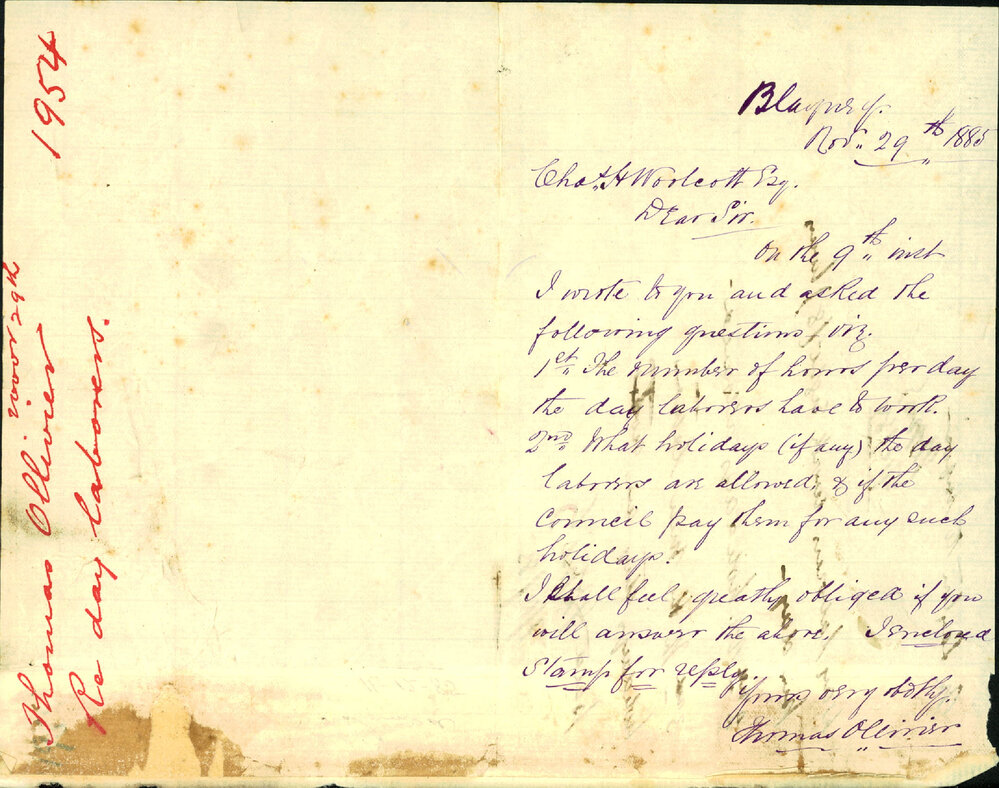 Blayney.
Novr. 29th 1885
Chas. H Woolcott Esq.
Dear Sir.
On the 9th inst
I wrote to you and asked the
following questions viz.
1st The number of hours per day
the day laborers have to work.
2nd What holidays (if any) the day
laborers are allowed, & if the
Council pay them for any such
holidays.
I shall feel greatly obliged if you
will answer the above. I enclosed
stamp for reply
Yours very obdtly.
Thomas Ollivier
1954
Novr 29th
Thomas Ollivier
Re day laborers.